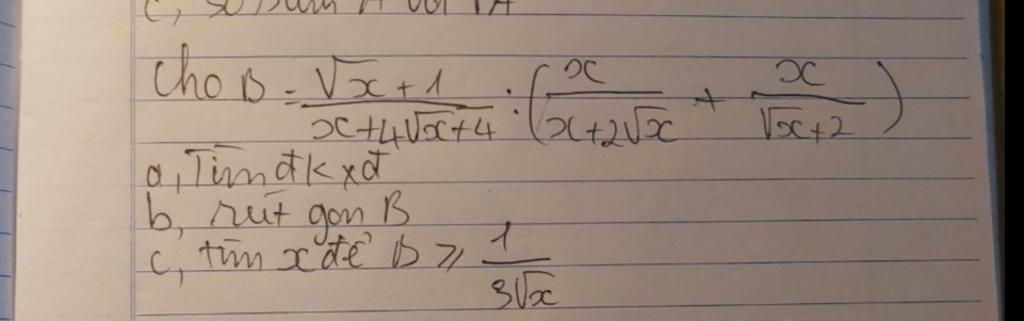 c, so sánh A với √A
Cho B = (√x + 1)/(x+4√x+4) : (x/(x+2√x) + x/(√x+2))
a, Tìm đkxđ
b, rút gọn B
c, tìm x để B ⩾ 1/(3√x)